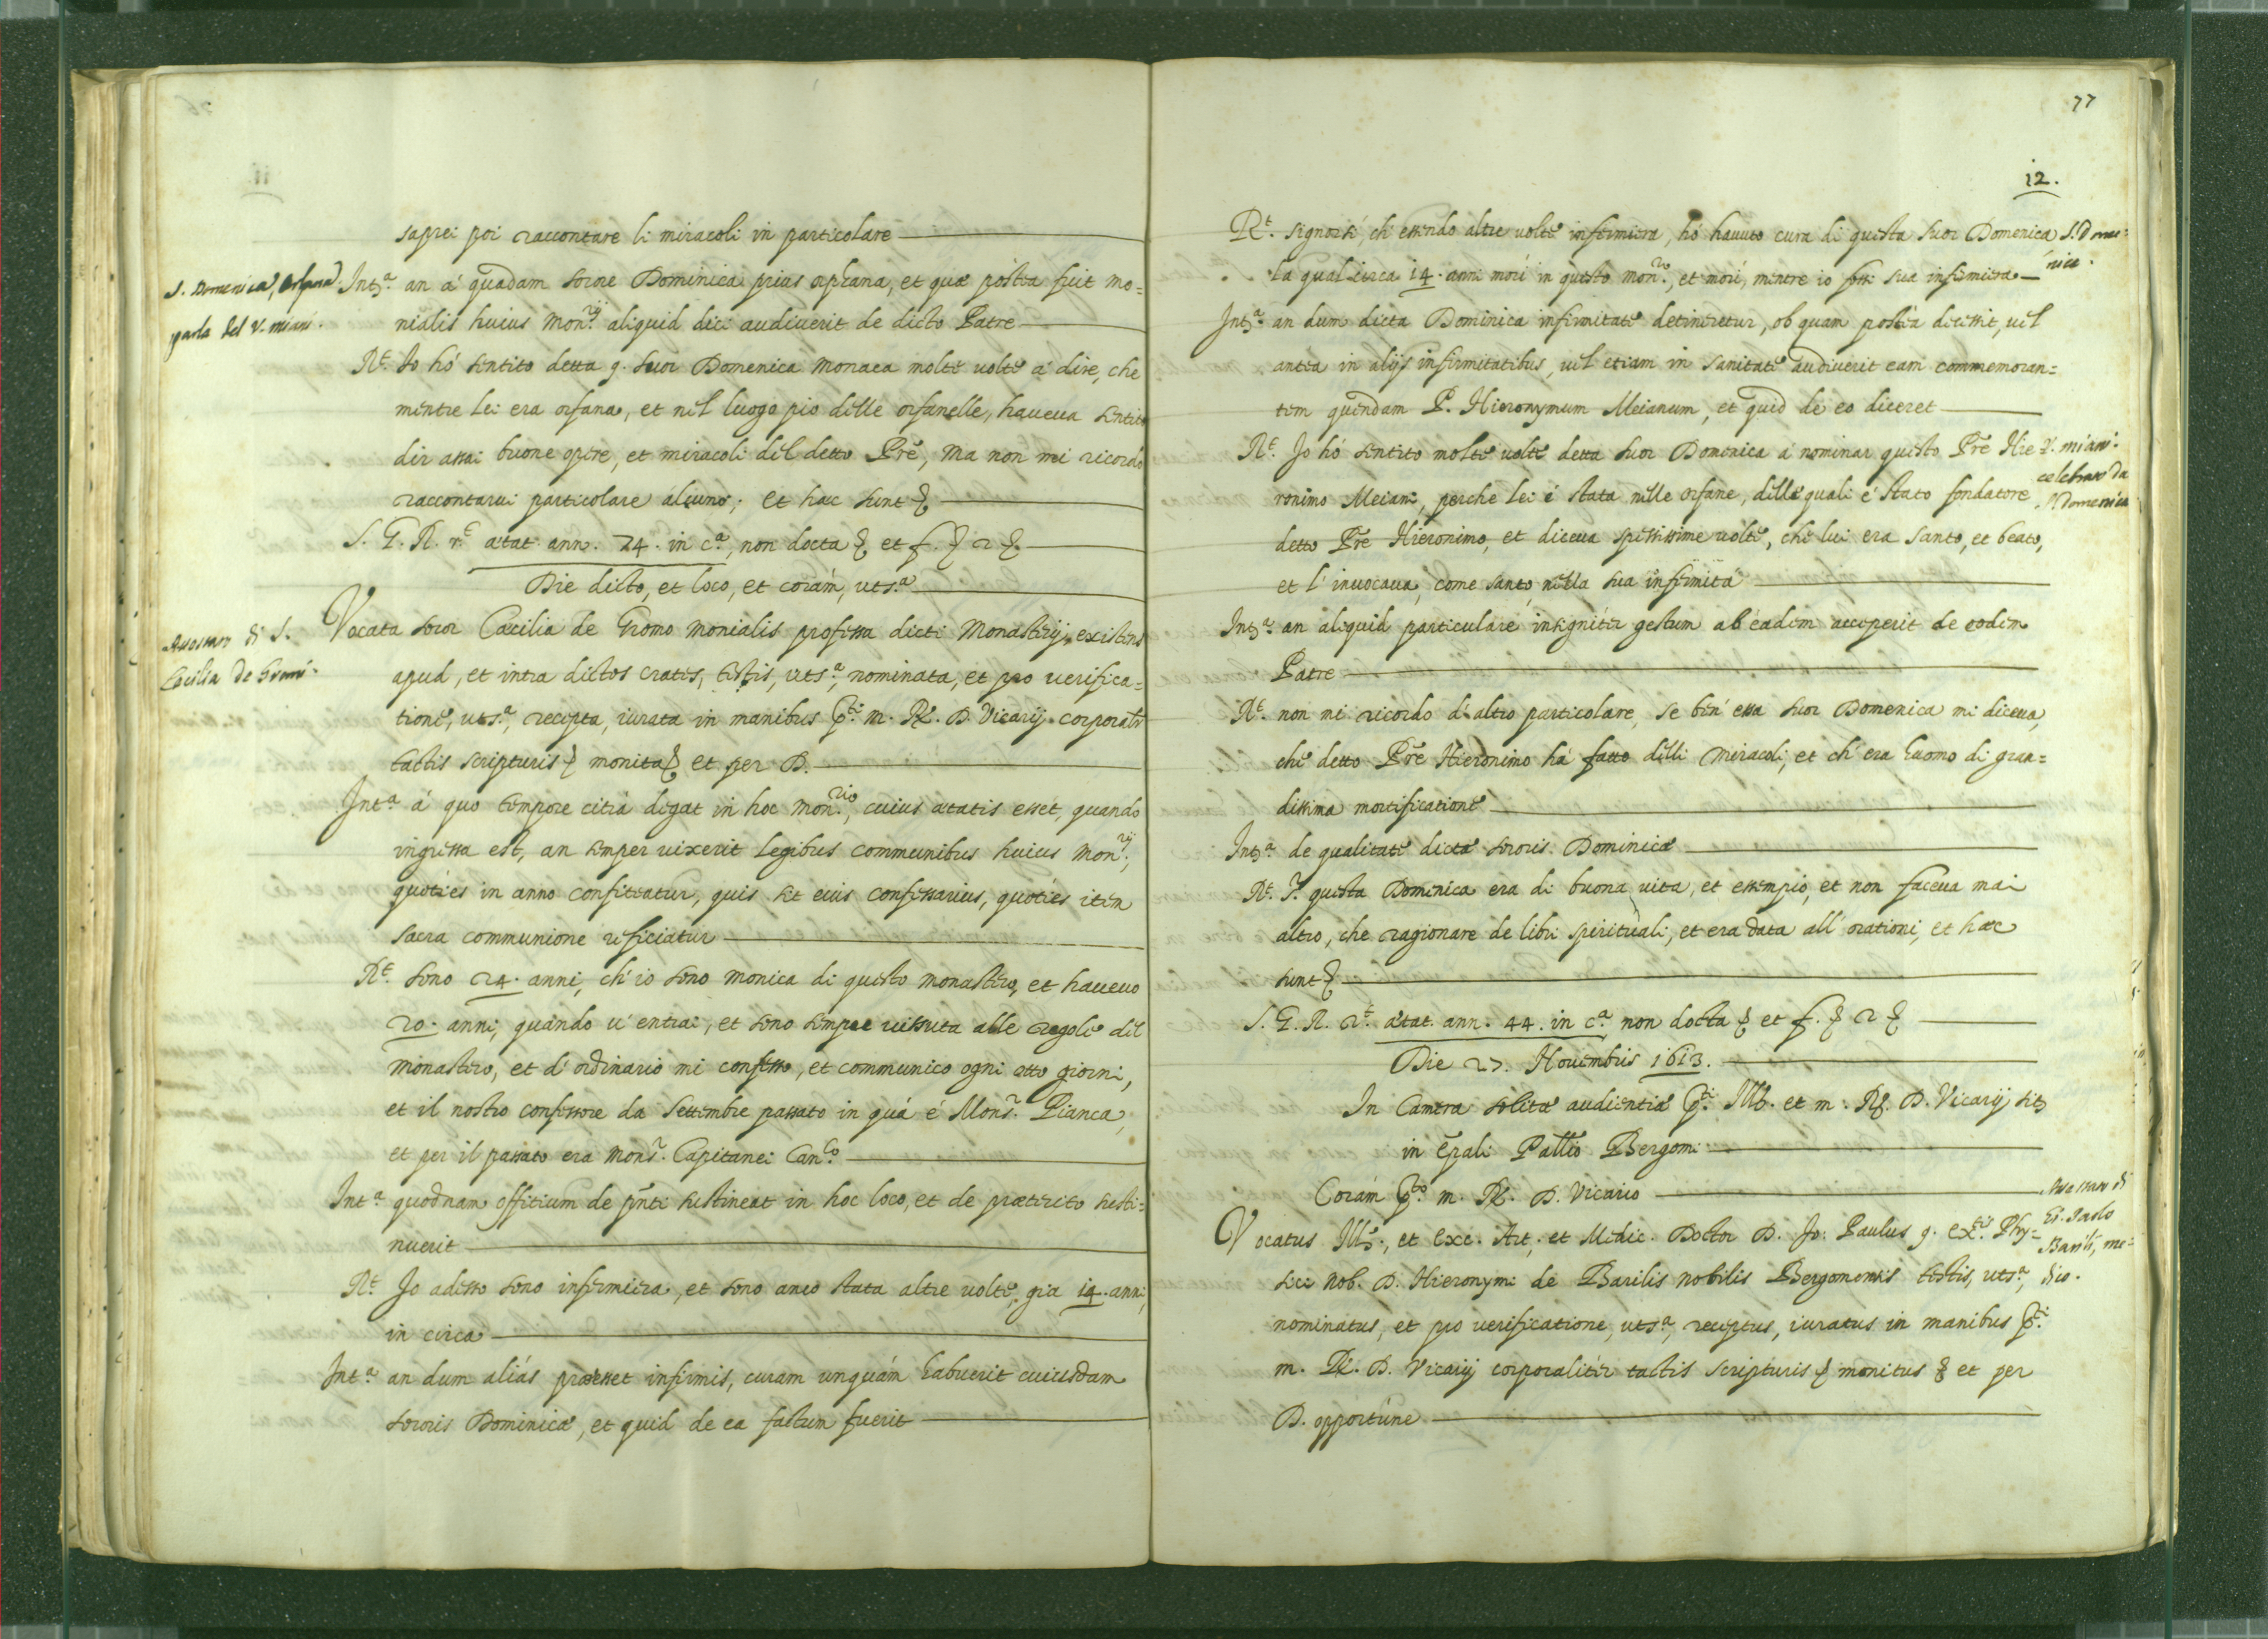 saprei poi raccontare li miracoli in particolare
S. Domenica, Orfana
parla del V. miani.
Int.ª an á quadam sorore Dominica prius orphana, et quæ póstea fuit mo=
nialis huius Mon.rij aliquid dici audiuerit de dicto Patre
R.t Io hó sentito detta q. suor Domenica Monaca molte uolte á dire, che
mentre lei era orfana, et nel luogo pio delle orfanelle, haueua sentito
dir assai buone opere, et miracoli del detto Pre, Ma non mi ricordo
raccontarui particolare alcuno; et hæc sunt
S. G. R. r.t ætat. ann. 74. in c.ª, non docta et f.
Die dicto, et loco, et corám, uts.ª
di S.
Cecilia de Gromi.
Vocata soror Cæcilia de Gromo Monialis professa dicti Monasterij, existens
apud, et intra dictos crates, testis, uts.ª, nominata, et pro uerifica=
tione, uts.ª, recepta, iurata in manibus p.ti m. R. D. Vicarij corporalr
tactis scripturis monita et per D.
Int.ª á quo tempore citrá degat in hoc mon.rio, cuius ætatis esset, quando
ingressa est, an semper uixerit legibus communibus huius mon.rij,
quoties in anno confiteatur, quis sit eius confessarius, quoties item
sacra communione reficiatur
R.t sono 24. anni, ch' io sono monica di questo monastero, et haueuo
20. anni, quando u' entrai, et sono sempre uissuta alle regole del
monastero, et d' ordinario mi confesso, et communico ogni otto giorni,
et il nostro confessore da settembre passato in quá é Mons.r Pianca,
et per il passato era Mons.r Capitanei Can.co
Int.ª quodnam offitium de pnti sustineat in hoc loco, et de præterito susti=
nuerit
R.t Jo adesso sono infermiera, et sono anco stata altre uolte, gia 14. anni,
in circa
Int.ª an dum aliás præesset infirmis, curam unquám habuerit cuiusdam
sororis Dominicæ, et quid de ea factum fuerit
77
12.
R.t Signorsi, ch' essendo altre uolte infermiera, hó hauuto cura di questa suor Domenica
S. Dome=
nica.
la qual circa 14. anni morí in questo mon.rio, et morí, mentre io fossi sua infermiera
Int.ª an dum dicta Dominica infirmitate detineretur, ob quam postea decessit, uel
antea in alijs infirmitatibus, uel etiam in sanitate audiuerit eam commemoran=
tem quendam P. Hieronymum Meianum, et quid de eo diceret
R.t Jo hó sentito molte uolte detta suor Domenica á nominar questo Pre Hie
V. miani.
celebrato da
S. Domenica
ronimo Meiani, perche lei é stata nelle orfane, delle quali é stato fondatore
detto Pre Hieronimo, et diceua spessissime uolte, che lui era santo, et beato,
et l' inuocaua, come santo, nella sua infermitá
Int.ª an aliquid particulare insignitér gestum ab eádem acceperit de eodem
Patre
R.t non mi ricordo d' altro particolare, se ben' essa suor Domenica mi diceua,
che detto Pre Hieronimo há fatto delli miracoli, et ch' era huomo di gran=
dissima mortificatione
Int.ª de qualitate dictæ sororis Dominicæ
R.t questa Domenica era di buona uita, et essempio, et non faceua mai
altro, che ragionare de libri spirituali, et era data all' orationi, et hæc
sunt
S. G. R. r.t ætat. ann. 44. in c.ª non docta et f.
Die 27. Nouembris 1613.
In Camera solitæ audientiæ p.ti Ill. et m. R. D. Vicarij sit.
in epali Pallo Bergomi
Corám p.to m. R. D. Vicario
di
Gi. Paolo
Barili, me=
dico.
Vocatus Ill., et Exc. Art. et Medic. Doctor D. Jo: Paulus q. Ex.tis Phy=
sici Nob. D. Hieronymi de Barilis nobilis Bergomensis testis, uts.ª,
nominatus, et pro uerificatione, uts.ª, receptus, iuratus in manibus p.ti
m. R. D. Vicarij corporalitér tactis scripturis monitus et per
D. opportúne